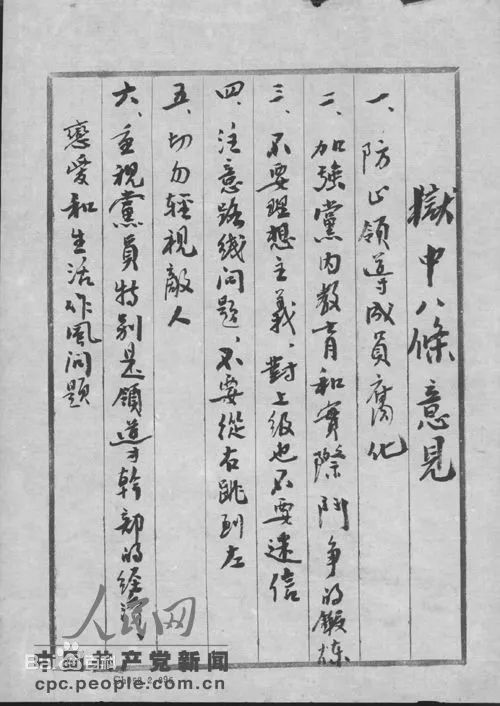 獄中八條意見
一、防止領导成員腐化
二、加強黨内教育和實際鬥争的鍛煉
三、不要理想主義、對上級也不要迷信
四、注意路线问題、不要從右跳到左
五、切勿輕視敵人
六、重視黨員特别是領導幹部的經濟、
戀愛和生活作風问題
人民网
Baidu百科
中国共产党新闻
cpc.people.com.cn